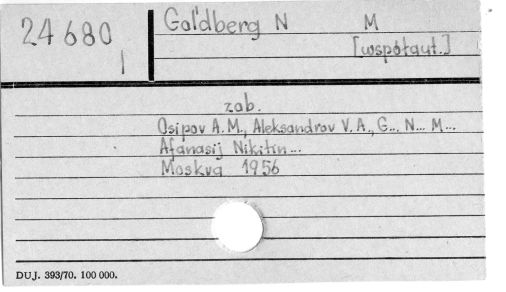 24680
I
Gol'dberg N M
[współaut.]
zob.
Osipov A.M., Aleksandrov V.A., G... N... M...
Afanasij Nikitin...
Moskva 1956
DUJ. 393/70. 100 000.